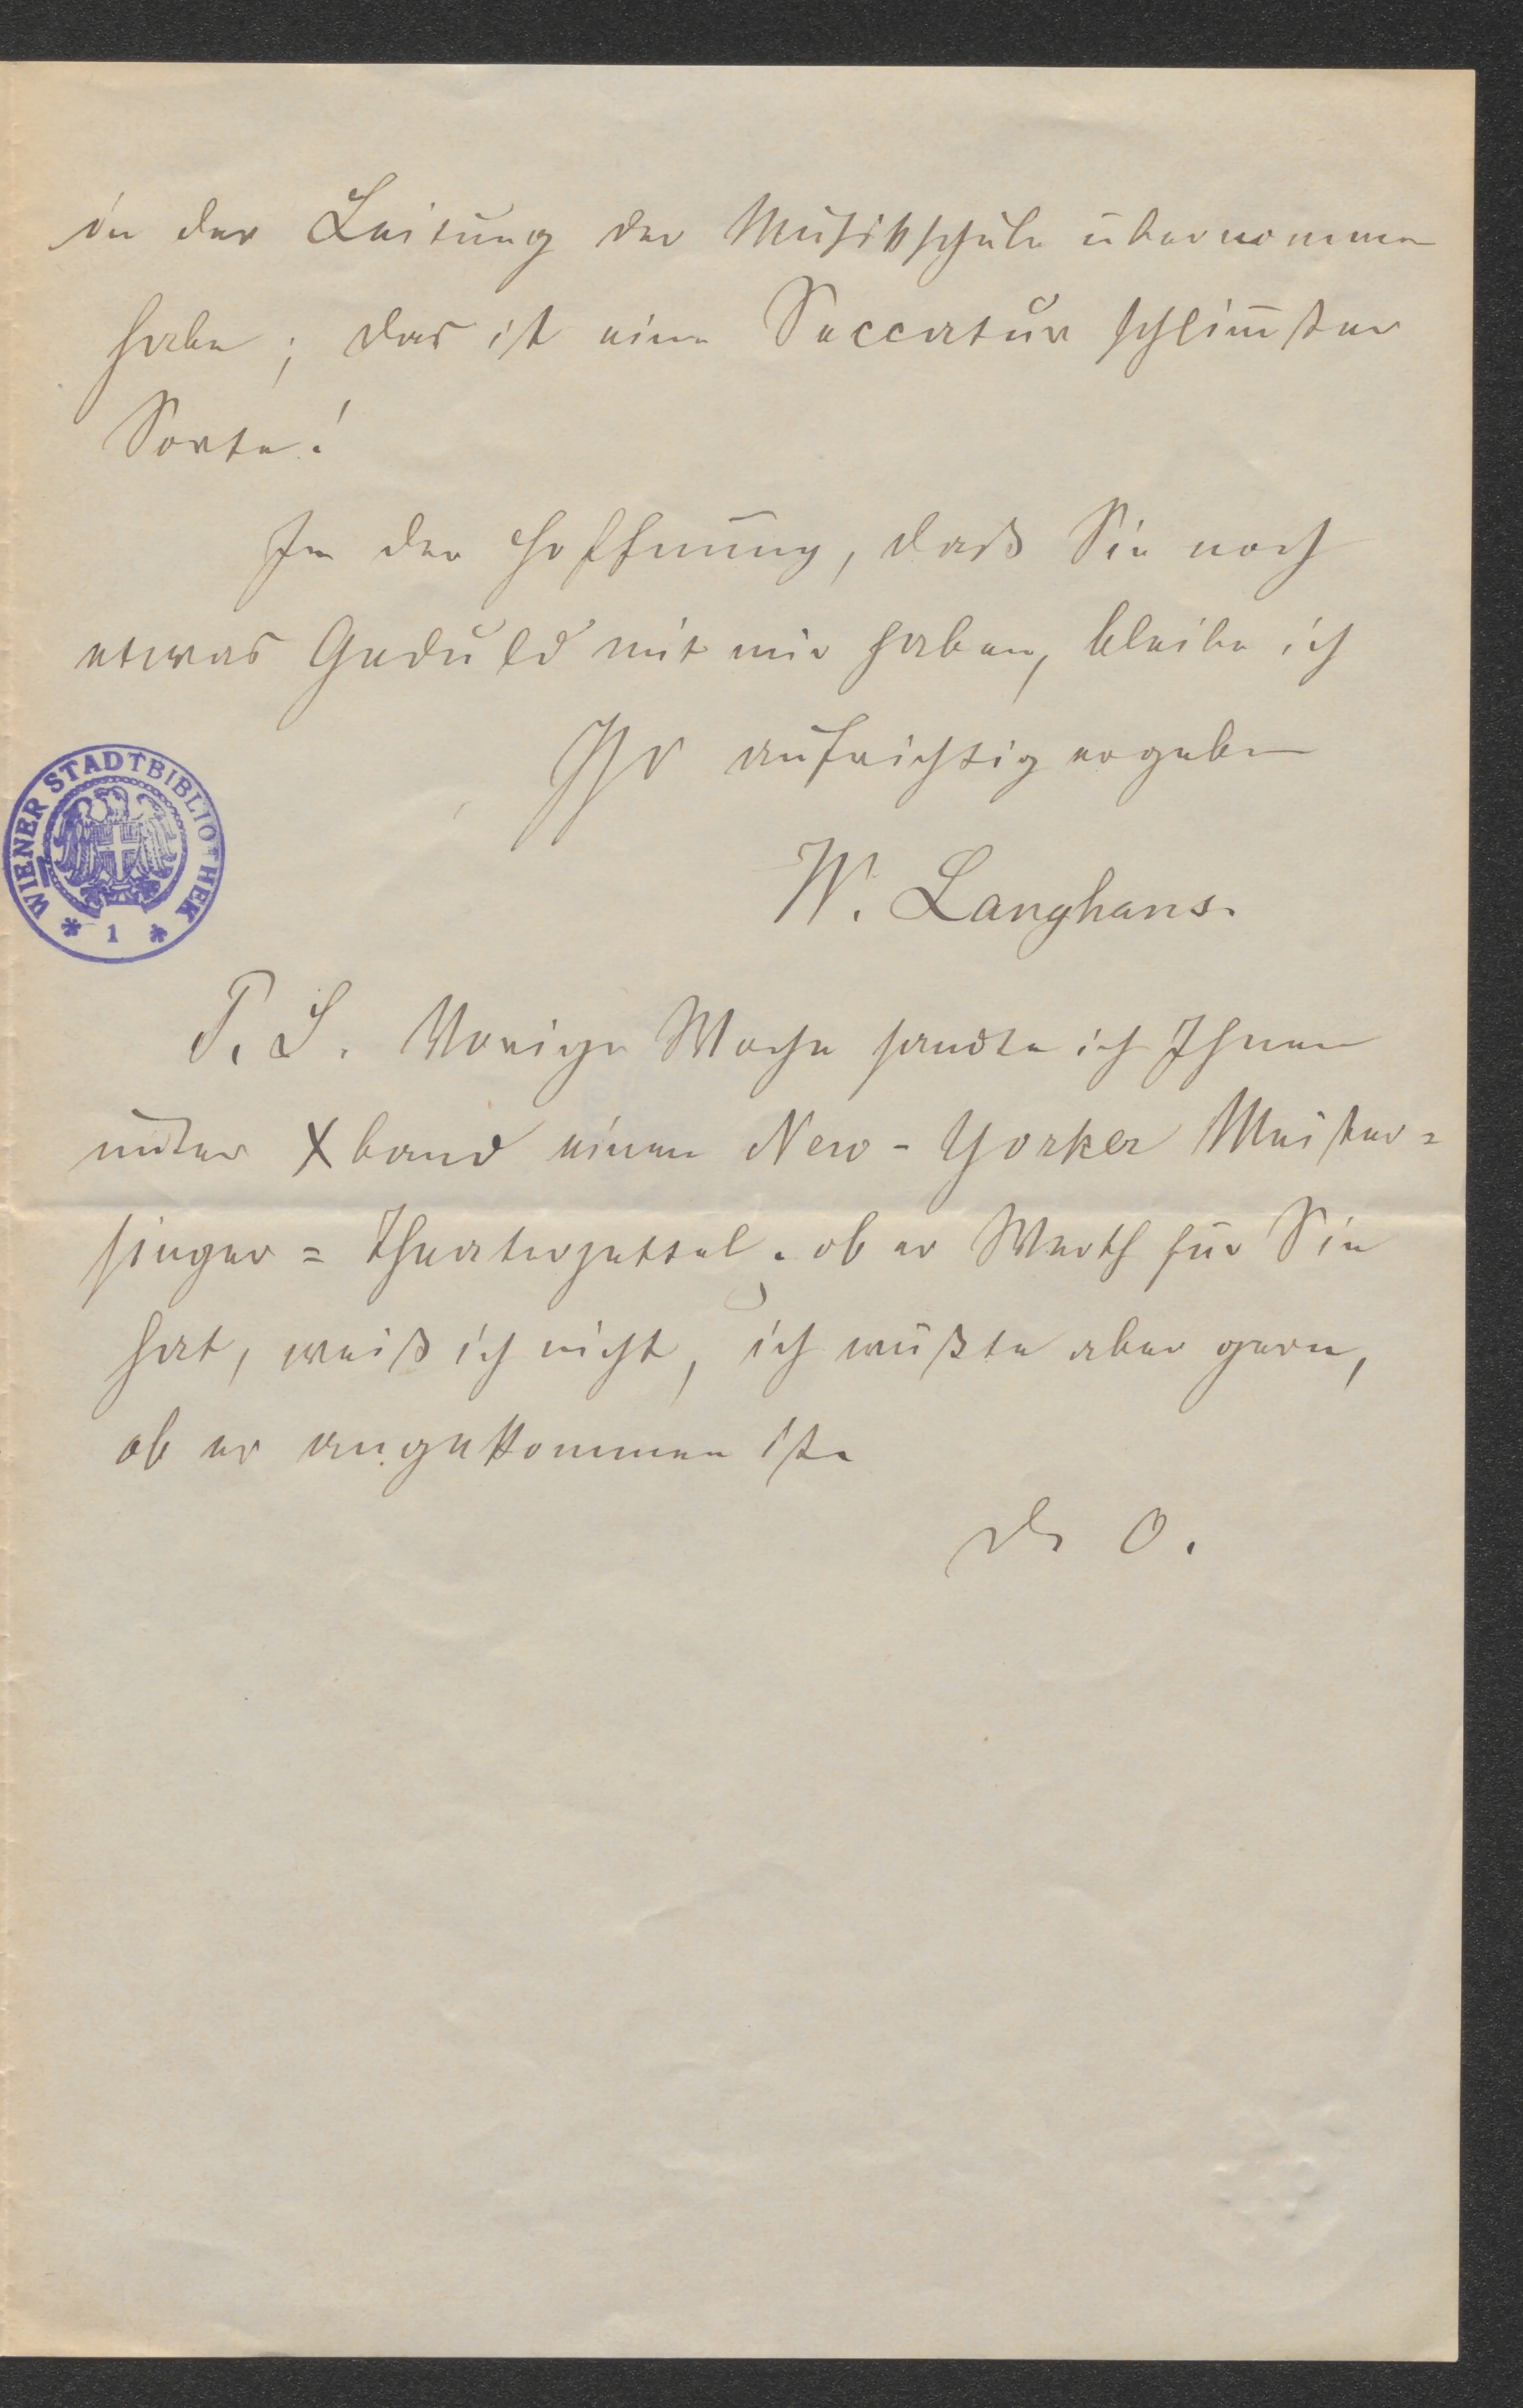 in der Leitung der Musikschule übernommen
habe; das ist eine Seccatur schlim̅ster
Sorte!
In der Hoffnung, daß Sie noch
etwas Geduld mit mir haben, bleibe ich
Ihr aufrichtig ergeben
W. Langhans.
WIENER STADTBIBLIOTHEK
* 1 *
P. S. Vorige Woche sandte ich Ihnen
unter Xband einen New-Yorker Meister=
singer=Theaterzettel; ob er Werth für Sie
hat, weiß ich nicht, ich wüßte aber gern,
ob er angekommen ist.
D. O.